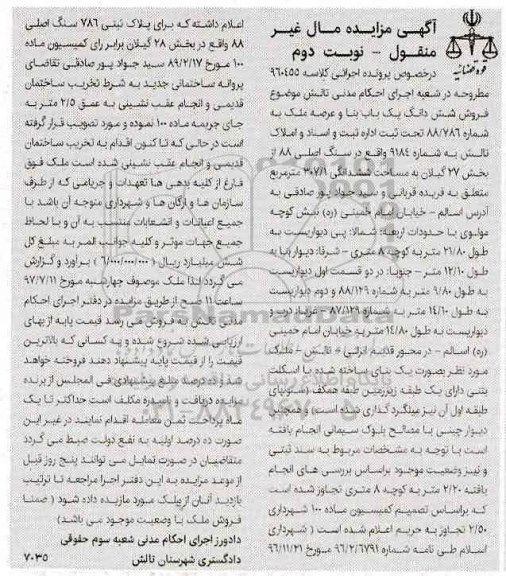 آگهی مزایده مال غیر
منقول - نوبت دوم
قوه قضائیه
درخصوص پرونده اجرائی کلاسه ۹۶۰۴۵۵
مطروحه در شعبه اجرای احکام مدنی تالش موضوع
فروش شش دانگ یک باب بنا و عرصه ملک به
شماره ۸۸/۷۸۶ تحت ثبت اداره ثبت و اسناد و املاک
تالش به شماره ۹۱۸۴ واقع در سنگ اصلی ۸۸ از
بخش ۲۷ گیلان به مساحت ششدانگی ۳۰۷/۱ مترمربع
متعلق به فریده قربانی و سید جواد پور صادقی به
آدرس اسالم - خیابان امام خمینی (ره) نبش کوچه
مولوی با حدودات اربعه: شمالا: پی دیواریست به
طول ۲۱/۸۰ متر به کوچه ۸ متری - شرقا: دیوار بنا به
طول ۱۲/۱۰ متر - جنوبا: در دو قسمت اول دیواریست
به طول ۹/۸۰ متر به شماره ۸۸/۱۲۹ و دوم دیواریست
به طول ۱۴/۶۰ متر به شماره ۸۷/۱۲۹ - غربا: درب و
دیواریست به طول ۱۴/۸۰ متر به خیابان امام خمینی
(ره) اسالم - در محور قدیم انزلی - تالش - ملک
مورد نظر بصورت یک بنای ساخته شده با اسکلت
بتنی دارای یک طبقه زیرزمین طبقه همکف (ستونهای
طبقه اول آن نیز میلگرد گذاری شده است) و همچنین
دیوار چینی با مصالح بلوک سیمانی انجام یافته
است با توجه به مشخصات مربوط به سند ثبتی
و نیز وضعیت موجود براساس بررسی های انجام
یافته ۲/۲۰ متر به کوچه ۸ متری تجاوز شده است
که براساس تصمیم کمیسیون ماده ۱۰۰ شهرداری
۲/۵۰ تجاوز به حریم اعلام شده است ( شهرداری
اسلام طی نامه شماره ۹۶/۲/۶۷۹۱ مورخ ۹۶/۱۱/۲۱
اعلام داشته که برای پلاک ثبتی ۷۸۶ سنگ اصلی
۸۸ واقع در بخش ۲۸ گیلان برابر رای کمیسیون ماده
۱۰۰ مورخ ۸۹/۲/۱۷ سید جواد پور صادقی تقاضای
پروانه ساختمانی جدید به شرط تخریب ساختمان
قدیمی و انجام عقب نشینی به عمق ۲/۵ متر به
جای جریمه ماده ۱۰۰ نموده و مورد تصویب قرار گرفته
است در حالی که تا کنون اقدام به تخریب ساختمان
قدیمی و انجام عقب نشینی شده است ملک فوق
فارغ از کلیه بدهی ها تعهدات و جرایمی که از طرف
سازمان ها و ارگان ها و شهرداری متوجه آن باشد با
جمیع اعیانات و انشعابات منتسب به آن و با لحاظ
جمیع جهات موثر و کلیه جوانب المر به مبلغ کل
شش میلیارد ریال (۶/۰۰۰/۰۰۰/۰۰۰) برآورد و گزارش
می گردد لذا ملک موصوف چهارشنبه مورخ ۹۷/۷/۱۱
ساعت ۱۱ صبح از طریق مزایده در دفتر اجرای احکام
مدنی تالش به فروش می رسد قیمت پایه از بهای
ارزیابی شده شروع شده و به کسانی که بالاترین
قیمت را از قیمت پایه پیشنهاد دهند فروخته خواهد
شد و ده درصد مبلغ پیشنهادی فی المجلس از برنده
مزایده دریافت و نامبرده مکلف است حداکثر تا یک
ماه پرداخت ثمن معامله اقدام نمایند در غیر این
صورت ده درصد اولیه به نفع دولت ضبط می گردد
متقاضیان در صورت تمایل می توانند پنج روز قبل
از موعد مزایده به این دفتر اجرا مراجعه تا ترتیب
بازدید آنان از ملک مورد مازیده داده شود ( ضمنا
فروش ملک با وضعیت موجود می باشد)
دادورز اجرای احکام مدنی شعبه سوم حقوقی
دادگستری شهرستان تالش
۷۰۳۵
ParsNamadData